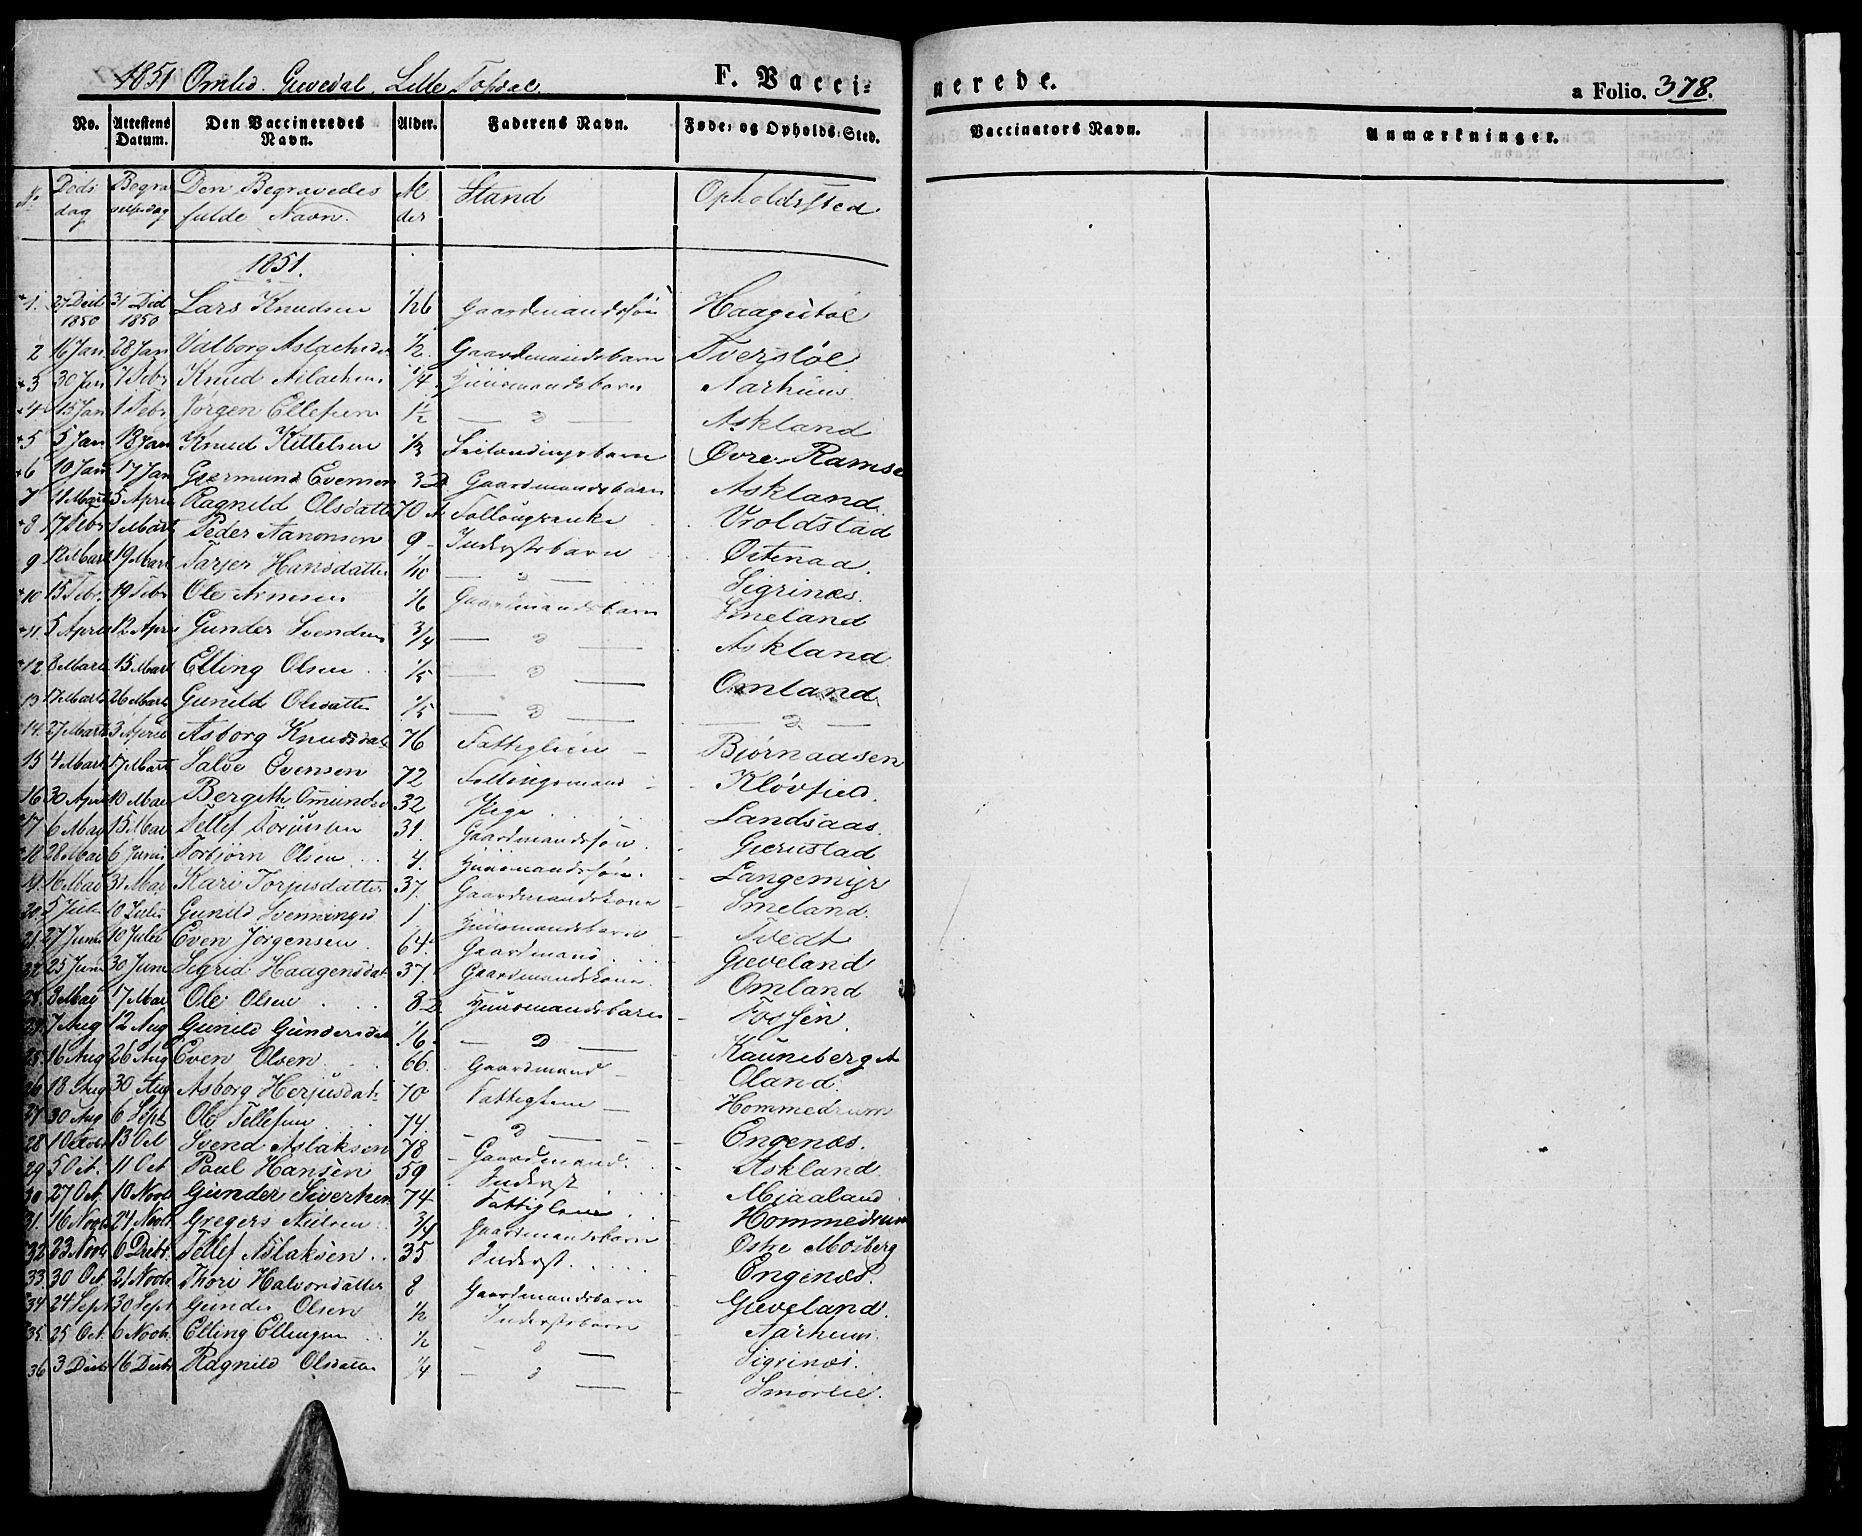 1851 Omlid. Grevedal, Lille Topdal. F. Vacci- nerede. a Folio. 378.
No. Attestens Datum. Den Vaccineredes Navn. Alder. Faderens Navn. Føde- og Opholds-Sted. Vaccinators Navn. Anmærkninger.
No Døds dag Begra velsesdag Den Begravedes fulde Navn. Al der Stand Opholdssted
1851.
1. 27 Decb 1850 31 Decb 1850 Lars Knudsen 1/26 Gaardmandssøn
2 16 Jan 28 Jan Valborg Aslachsd 1/2. Gaardmandsbarn Tversløl
3 30 Jan 7 Febr Knud Aslachsen 1/4 Huusmandsbarn Aarhuus
4 15 Jan 1 Febr Jørgen Ellefsen 1 1/2 — D — Askland
5 5 Jan 18 Jan Knud Kittelsen 1/3 Leilændingsbarn Øvre Ramse
6 10 Jan 17 Jan Gjermund Evensen 3 D. Gaardmandsbarn Askland
7 11 Marts 5 April Ragnild Olsdatter 70 Vroldstad
8 17 Febr 1 Marts Peder Aanonsen 9 - Inderstbarn
9 12 Marts 19 Marts Tarjer Hansdatter 1/10 — D — Sigrinæs.
10 15 Febr. 19 Febr Ole Arnesen 1/6 Gaardmandsbarn Smeland
11. 5 April 12 April Gunder Svendsen 3/4 — D — Askland
12 8 Marts 15 Marts Elling Olsen 1/5 — D — Omland
13 17 Marts 26 Marts Gunild Olsdatter 1/5 — D — — D —
14. 27 Marts 3 April Asborg Knudsdat 76 Fattiglem Bjørnaasen
15 4 Marts 17 Marts Salve Evensen 72 Kløvfjeld.
16 30 April 10 Mai Bergith Omundsd 32 Pige Landsaas.
17 6 Mai 15 Mai Tellef Torjussen 31. Gaardmandssøn. Gjerustad
18 28 Mai 6 Juni Torbjørn Olsen 4. Huusmandssøn. Langemyr
19 16 Mai 31 Mai Kari Torjusdatter 37. Gaardmandskone Smeland.
20. 5 Juli 10 Juli Gunild Svenningsd 1 Huusmandsbarn Tvedt
21. 27 Juni 10 Juli Even Jørgensen 64. Gaardmand. Greveland
22 25 Juni 30 Juni Sigrid Haagensdat 37. Gaardmandskone. Omland
23. 3 Mai 17 Mai Ole Olsen 8 D. Huusmandsbarn Fossen.
24. 7 Aug 12 Aug Gunild Gundersdat 1/6 — D —
25. 16 Aug 26 Aug Even Olsen 66. Gaardmand Oland.
26 18 Aug 30 Aug Asborg Herjusdat 70 Fattiglem Hommedrum
27 30 Aug 6 Sept Ole Tellefsen 74. — D — Engenæs.
28 13 Oct Svend Aslaksen 78 Gaardmand. Askland
29 5 Oct. 11 Oct Paul Hansen 59 Inderst Mjaaland
30 27 Oct. 10 Novb Gunder Siversen 74 Fattiglem Hommedrum
31. 16 Novb 24 Novb Gregers Nielsen 3/4 Gaardmandsbarn Østre Mosberg
32 23 Novb 6 Decbr Tellef Aslaksen 35 Inderst. Engenæs.
33. 30 Oct. 21 Novb Thori Halvorsdatter 8 Gaardmandsbarn Greveland.
34 24 Sept 30 Sept Gunder Olsen 1/2 Inderstbarn Aarhuus
35. 25 Oct. 6 Novb. Elling Ellingsen 1/2 — D — Sigrinæs.
36 3 Decbr 16 Decbr Ragnild Olsdatter 1/4 — D — Smørlie.